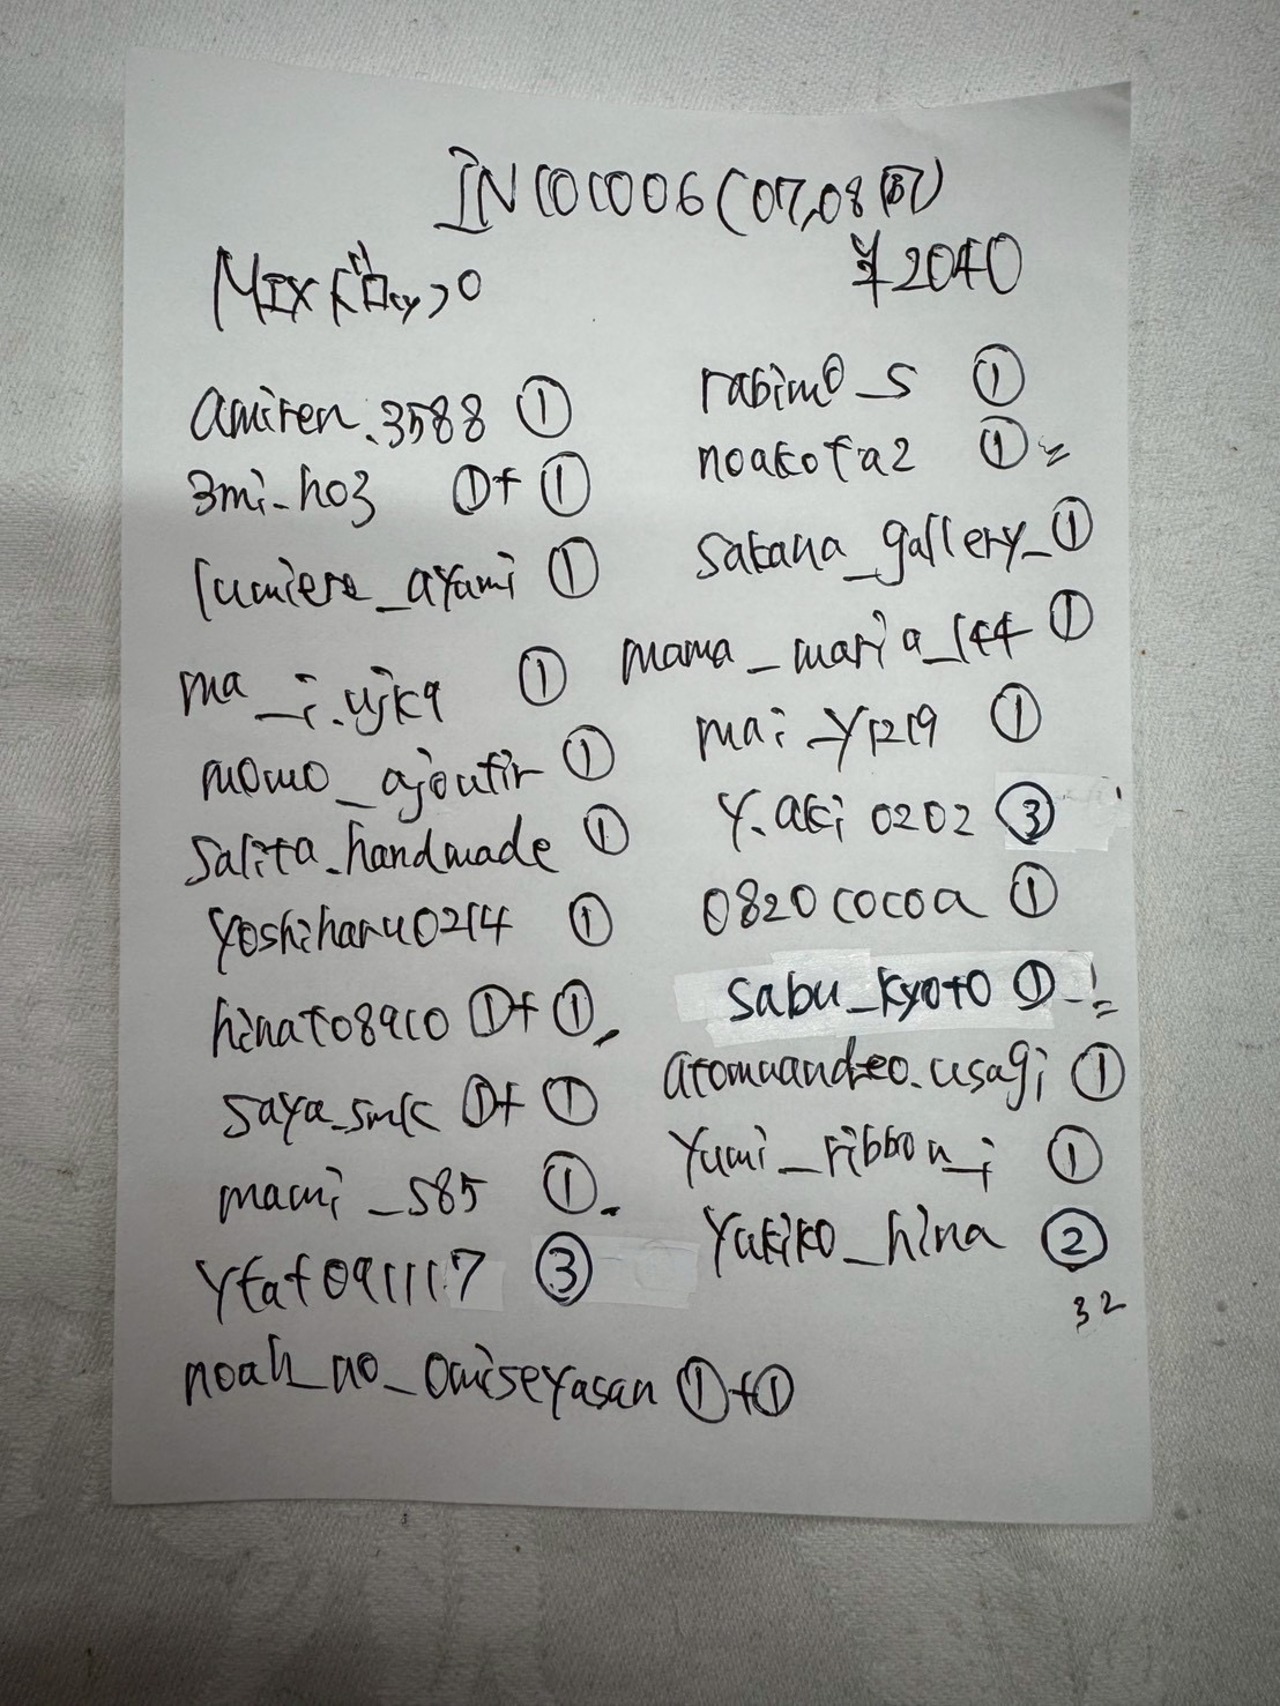 ¥2040
amiren.3588 ①
3mi-ho3 ①+①
lumiere_ayami ①
ma_i.ujk9 ①
momo_ajoutir ①
salita.handmade ①
yoshiharu0214 ①
hinato8910 ①+①
saya_smk ①+①
mami_s85 ①
③
noah_no_omiseyasan ①+①
rabimo_s ①
noakota2 ①
sakana_gallery_①
mama_maria_144 ①
mai_y1219 ①
y.aki0202 ③
0820cocoa ①
sabu_kyoto ①
①
yumi_ribbon_i ①
yukiko_hina ②
32